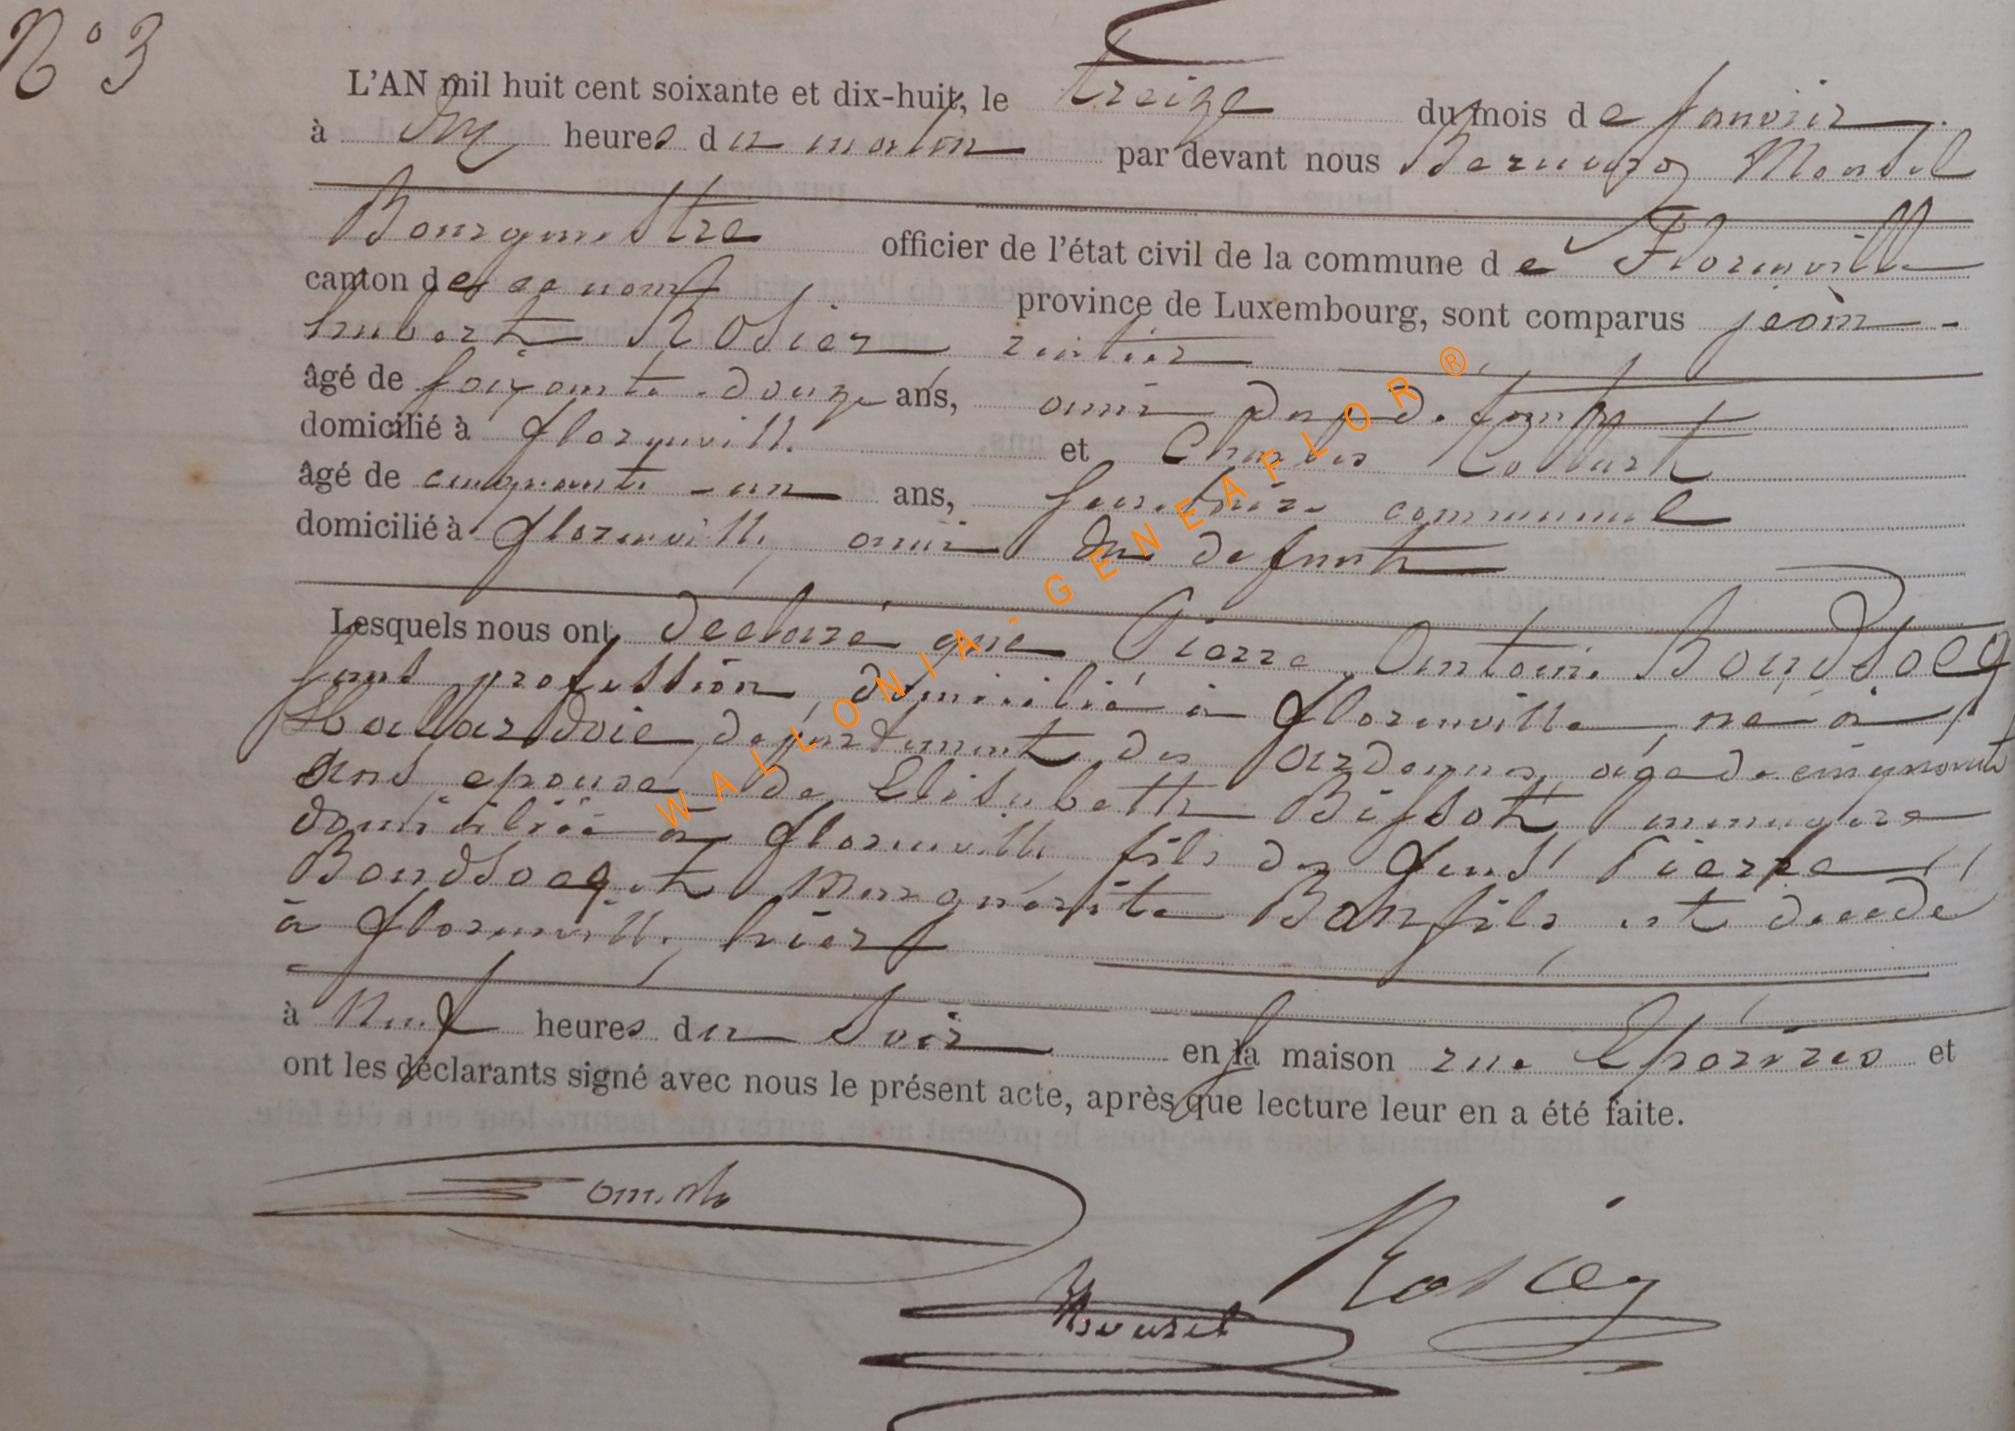 N° 3
L'AN mil huit cent soixante et dix-huit, le treize du mois de Janvier
à dix heures du matin par devant nous
Bourgmestre officier de l'état civil de la commune de Florenville
canton de ce nom province de Luxembourg, sont comparus jean
hubert Rosier rentier
âgé de soixante-douze ans, ami du defunt
domicilié à florenville et Charles Collart
âgé de cinquante-un ans, secretaire communal
domicilié à florenville, ami du defunt
Lesquels nous ont déclaré que Pierre Antoine Boudsocq
sans profession, domicilié à florenville, né à
departement des ardennes, agé de cinquante
ans, epoux de Elisabeth Bissot, menagere
domiciliée à florenville, fils des feus Pierre
Boudsocq et Marguerite Bonfils, est decedé
à florenville, hier
à neuf heures du soir en sa maison rue et
ont les déclarants signé avec nous le présent acte, après que lecture leur en a été faite.
Rosier
WALLONIA - GENEAFLOR ®